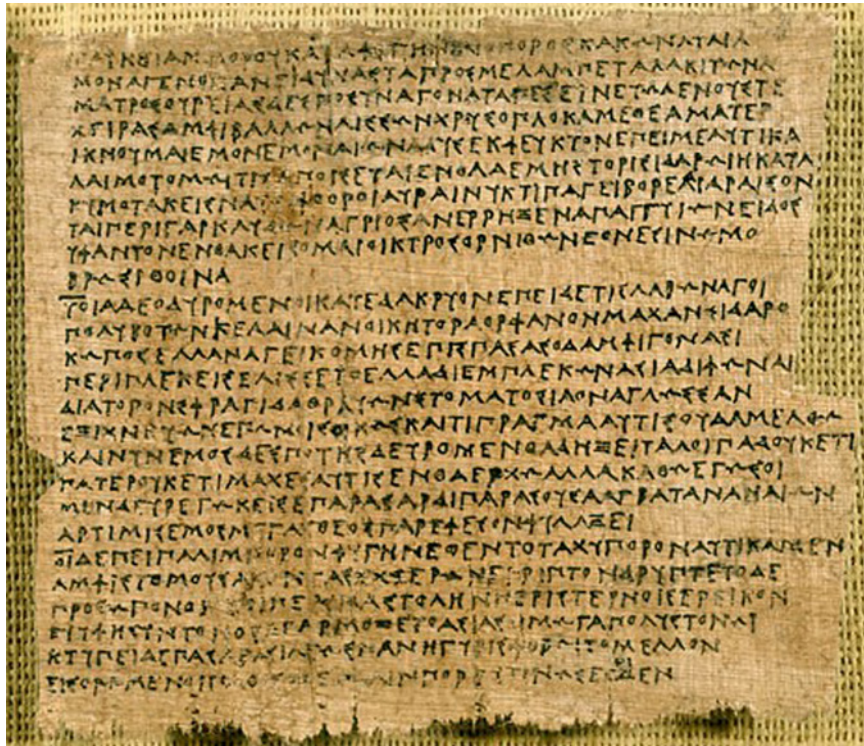 ΜΑΤΡΟΣΟΥΡΕΙΑΣΔΕΣΠΟΣΥΝΑΓΟΝΑΤΑΠΕΣΕΙΝΕΥΩΛΕΝΟΥΣΤΕ
ΧΕΙΡΑΣΑΜΦΙΒΑΛΛΩΝΛΙΣΣΩΝΧΡΥΣΟΠΛΟΚΑΜΕΘΕΑΜΑΤΕΡ
ΙΚΝΟΥΜΑΙΕΜΟΝΕΜΟΝΑΙΩΝΑΔΥΣΕΚΦΕΥΚΤΟΝΕΠΕΙΜΕΑΥΤΙΚΑ
ΛΑΙΜΟΤΟΜΩΙΤΙΣΑΠΟΙΣΕΤΑΙΕΝΘΑΔΕΜΗΣΤΟΡΙΣΙΔΑΡΩΙΗΚΑΤΑ
ΚΥΜΟΤΑΚΕΙΣΝΑΥΣΙΦΘΟΡΟΙΑΥΡΑΙΝΥΚΤΙΠΑΓΕΙΒΟΡΕΑΙΔΙΑΡΑΙΣΟΝ
ΤΑΙΠΕΡΙΓΑΡΚΛΥΔΩΝΑΓΡΙΟΣΑΝΕΡΡΗΞΕΝΑΠΑΝΓΥΙΩΝΕΙΔΟΣ
ΥΦΑΝΤΟΝΕΝΘΑΚΕΙΣΟΜΑΙΟΙΚΤΡΟΣΟΡΝΙΘΩΝΕΘΝΕΣΙΝΩΜΟ
ΒΡΩΣΙΘΟΙΝΑ
ΤΟΙΑΔΕΟΔΥΡΟΜΕΝΟΙΚΑΤΕΔΑΚΡΥΟΝΕΠΕΙΔΕΤΙΣΛΑΒΩΝΑΓΟΙ
ΠΟΛΥΒΟΤΩΝΚΕΛΑΙΝΑΝΟΙΚΗΤΟΡΑΟΡΦΑΝΟΝΜΑΧΑΝΣΙΔΑΡΟ
ΚΩΠΟΣΕΛΛΑΝΑΓΕΙΚΟΜΗΣΕΠΙΣΠΑΣΑΣΟΔΑΜΦΙΓΟΝΑΣΙ
ΠΕΡΙΠΛΕΚΕΙΣΕΛΙΣΣΕΤΟΕΛΛΑΔΙΕΜΠΛΕΚΩΝΑΣΙΑΔΙΦΩΝΑΙ
ΔΙΑΤΟΡΟΝΣΦΡΑΓΙΔΑΘΡΑΥΩΝΣΤΟΜΑΤΟΣΙΑΟΝΑΓΛΩΣΣΑΝ
ΕΞΙΧΝΕΥΩΝΕΓΩΜΟΙΣΟΙΚΩΣΚΑΙΤΙΠΡΑΓΜΑΑΥΤΙΣΟΥΔΑΜΕΛΘΩ
ΚΑΙΝΥΝΕΜΟΣΔΕΣΠΟΤΗΣΔΕΥΡΟΜΕΝΘΑΔΗΞΕΙΤΑΛΟΙΠΑΔΟΥΚΕΤΙ
ΠΑΤΕΡΟΥΚΕΤΙΜΑΧΕΣΑΥΤΙΣΕΝΘΑΔΕΡΧΩΑΛΛΑΚΑΘΩΕΓΩΣΟΙ
ΜΕΝΔΕΥΡΕΓΩΚΕΙΣΕΠΑΡΑΣΑΡΔΙΠΑΡΑΣΟΥΣΑΑΓΒΑΤΑΝΑΝΑΙΩΝ
ΑΡΤΙΜΙΣΕΜΟΣΜΕΓΑΣΘΕΟΣΠΑΡΕΦΕΣΟΝΦΥΛΑΞΕΙ
ΟΙΔΕΠΕΙΠΑΛΙΜΠΟΡΟΝΦΥΓΗΝΕΘΕΝΤΟΤΑΧΥΠΟΡΟΝΑΥΤΙΚΑΜΕΝ
ΑΜΦΙΣΤΟΜΟΥΣΑΚΟΝΤΑΣΕΚΧΕΡΩΝΕΡΙΠΤΟΝΔΡΥΠΤΕΤΟΔΕ
ΠΡΟΣΩΠΟΝΟΝΥΞΙΠΕΡΣΙΔΑΣΤΟΛΗΝΠΕΡΙΣΤΕΡΝΟΙΣΕΡΕΙΚΟΝ
ΕΥΥΦΗΣΥΝΤΟΝΟΣΔΑΡΜΟΖΕΤΟΑΣΙΑΣΟΙΜΩΓΑΠΟΛΥΣΤΟΝΩΙ